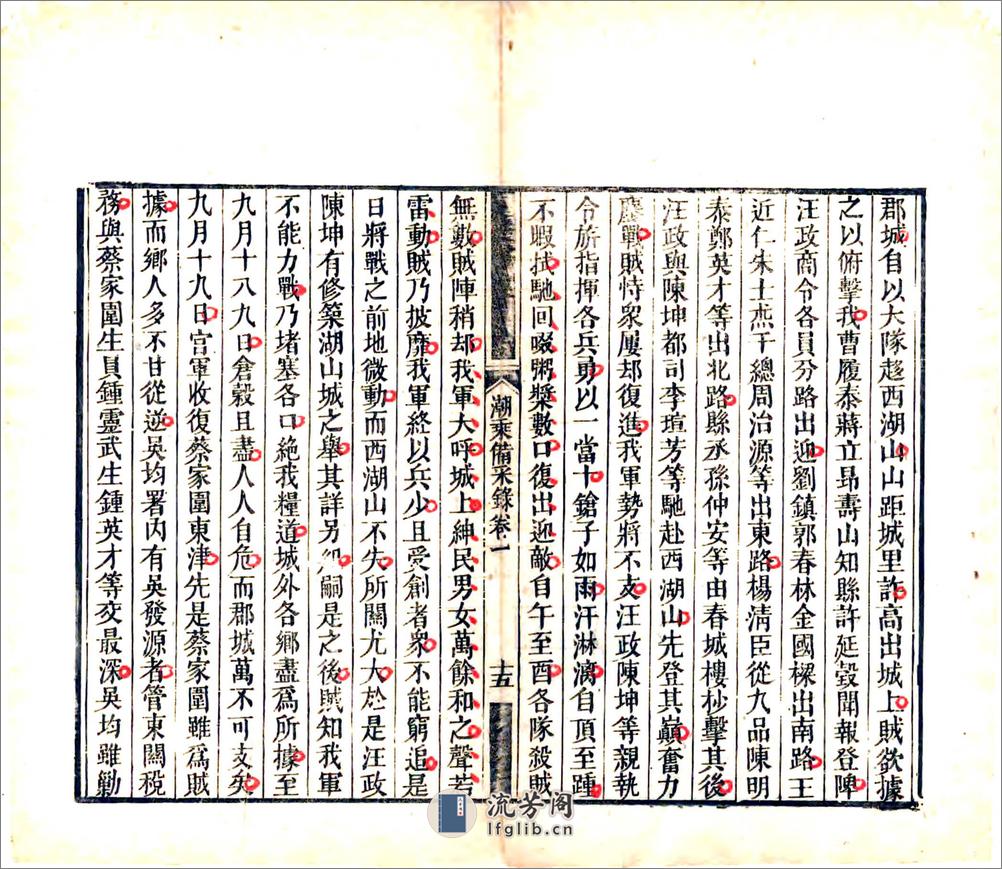 郡城自以大隊趁西湖山山距城里許高出城上賊欲據
之以俯擊我曹履泰蔣立昂壽山知縣許延瑴聞報登陴
汪政商令各員分路出迎劉鎮郭春林金國樑出南路王
近仁朱士烝千總周治源等出東路楊清臣從九品陳明
泰鄭英才等出北路縣丞孫仲安等由春城樓抄擊其後
汪政與陳坤都司李瑄芳等馳赴西湖山先登其巔奮力
鏖戰賊恃衆屢却復進我軍勢將不支汪政陳坤等親執
令旂指揮各兵勇以一當十鎗子如雨汗淋漓自頂至踵
不暇拭馳回啜粥槳數口復出迎敵自午至酉各隊殺賊
潮乘備采錄卷一
十五
無數賊陣稍却我軍大呼城上紳民男女萬餘和之聲若
雷動賊乃披靡我軍終以兵少且受創者衆不能窮追是
日將戰之前地微動而西湖山不失所關尤大於是汪政
陳坤有修築湖山城之舉其詳另嗣是之後賊知我軍
不能力戰乃堵塞各口絶我糧道城外各鄉盡爲所據至
九月十八九日倉穀且盡人人自危而郡城萬不可支矣
九月十九日官軍收復蔡家圍東津先是蔡家圍雖爲賊
據而鄉人多不甘從逆吳均署內有吳發源者管東關稅
務與蔡家圍生員鍾靈武生鍾英才等交最深吳均雖勦
流芳阁
lfglib.cn